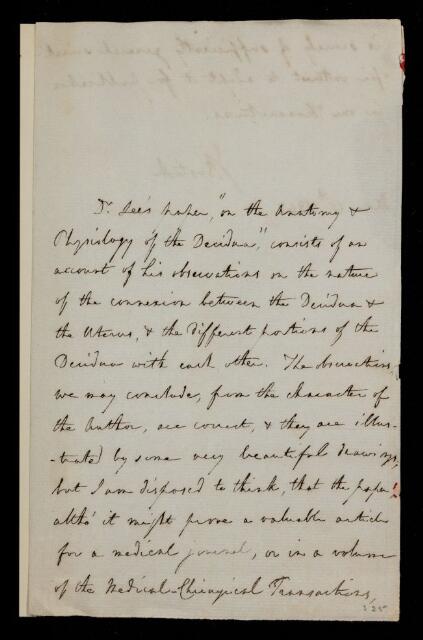 Dr. Lee's Paper, "on the Anatomy &
Physiology of the Decidua," consists of an
account of his observations on the nature
of the connexion between the Decidua &
the Uterus, & the different portions of the
Decidua with each other. The observations,
we may conclude, from the character of
the Author, are correct, & they are illus-
-trated by some very beautiful drawings,
but I am disposed to think, that the paper
altho' it might prove a valuable article
for a medical journal, or in a volume
of the Medical-Chirurgical Transactions,